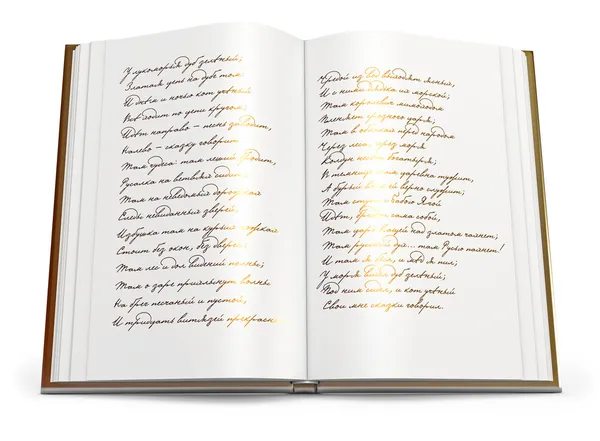 У лукоморья дуб зелёный;
Златая цепь на дубе том:
И днём и ночью кот учёный
Всё ходит по цепи кругом;
Идёт направо – песнь заводит,
Налево – сказку говорит.
Там чудеса: там леший бродит,
Русалка на ветвях сидит;
Там на неведомых дорожках
Следы невиданных зверей;
Избушка там на курьих ножках
Стоит без окон, без дверей;
Там лес и дол видений полны;
Там о заре прихлынут волны
На брег песчаный и пустой,
И тридцать витязей прекрасных
Чредой из вод выходят ясных,
И с ними дядька их морской;
Там королевич мимоходом
Пленяет грозного царя;
Там в облаках перед народом
Через леса, через моря
Колдун несёт богатыря;
В темнице там царевна тужит,
А бурый волк ей верно служит;
Там ступа с Бабою Ягой
Идёт, бредёт сама собой,
Там царь Кащей над златом чахнет;
Там русский дух... там Русью пахнет!
И там я был, и мёд я пил;
У моря видел дуб зелёный;
Под ним сидел, и кот учёный
Свои мне сказки говорил.